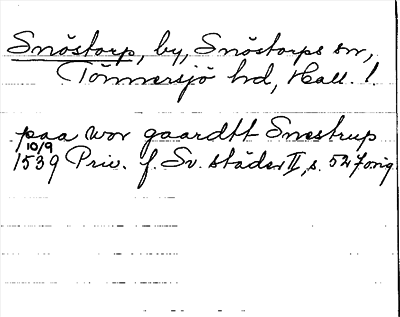 Snöstorp, by, Snöstorps sn,
Tönnersjö hd, Hall. !
paa wor gaardtt Snestrup
10/9
1539 Priv. f. Sv. städer II, s. 527 orig.